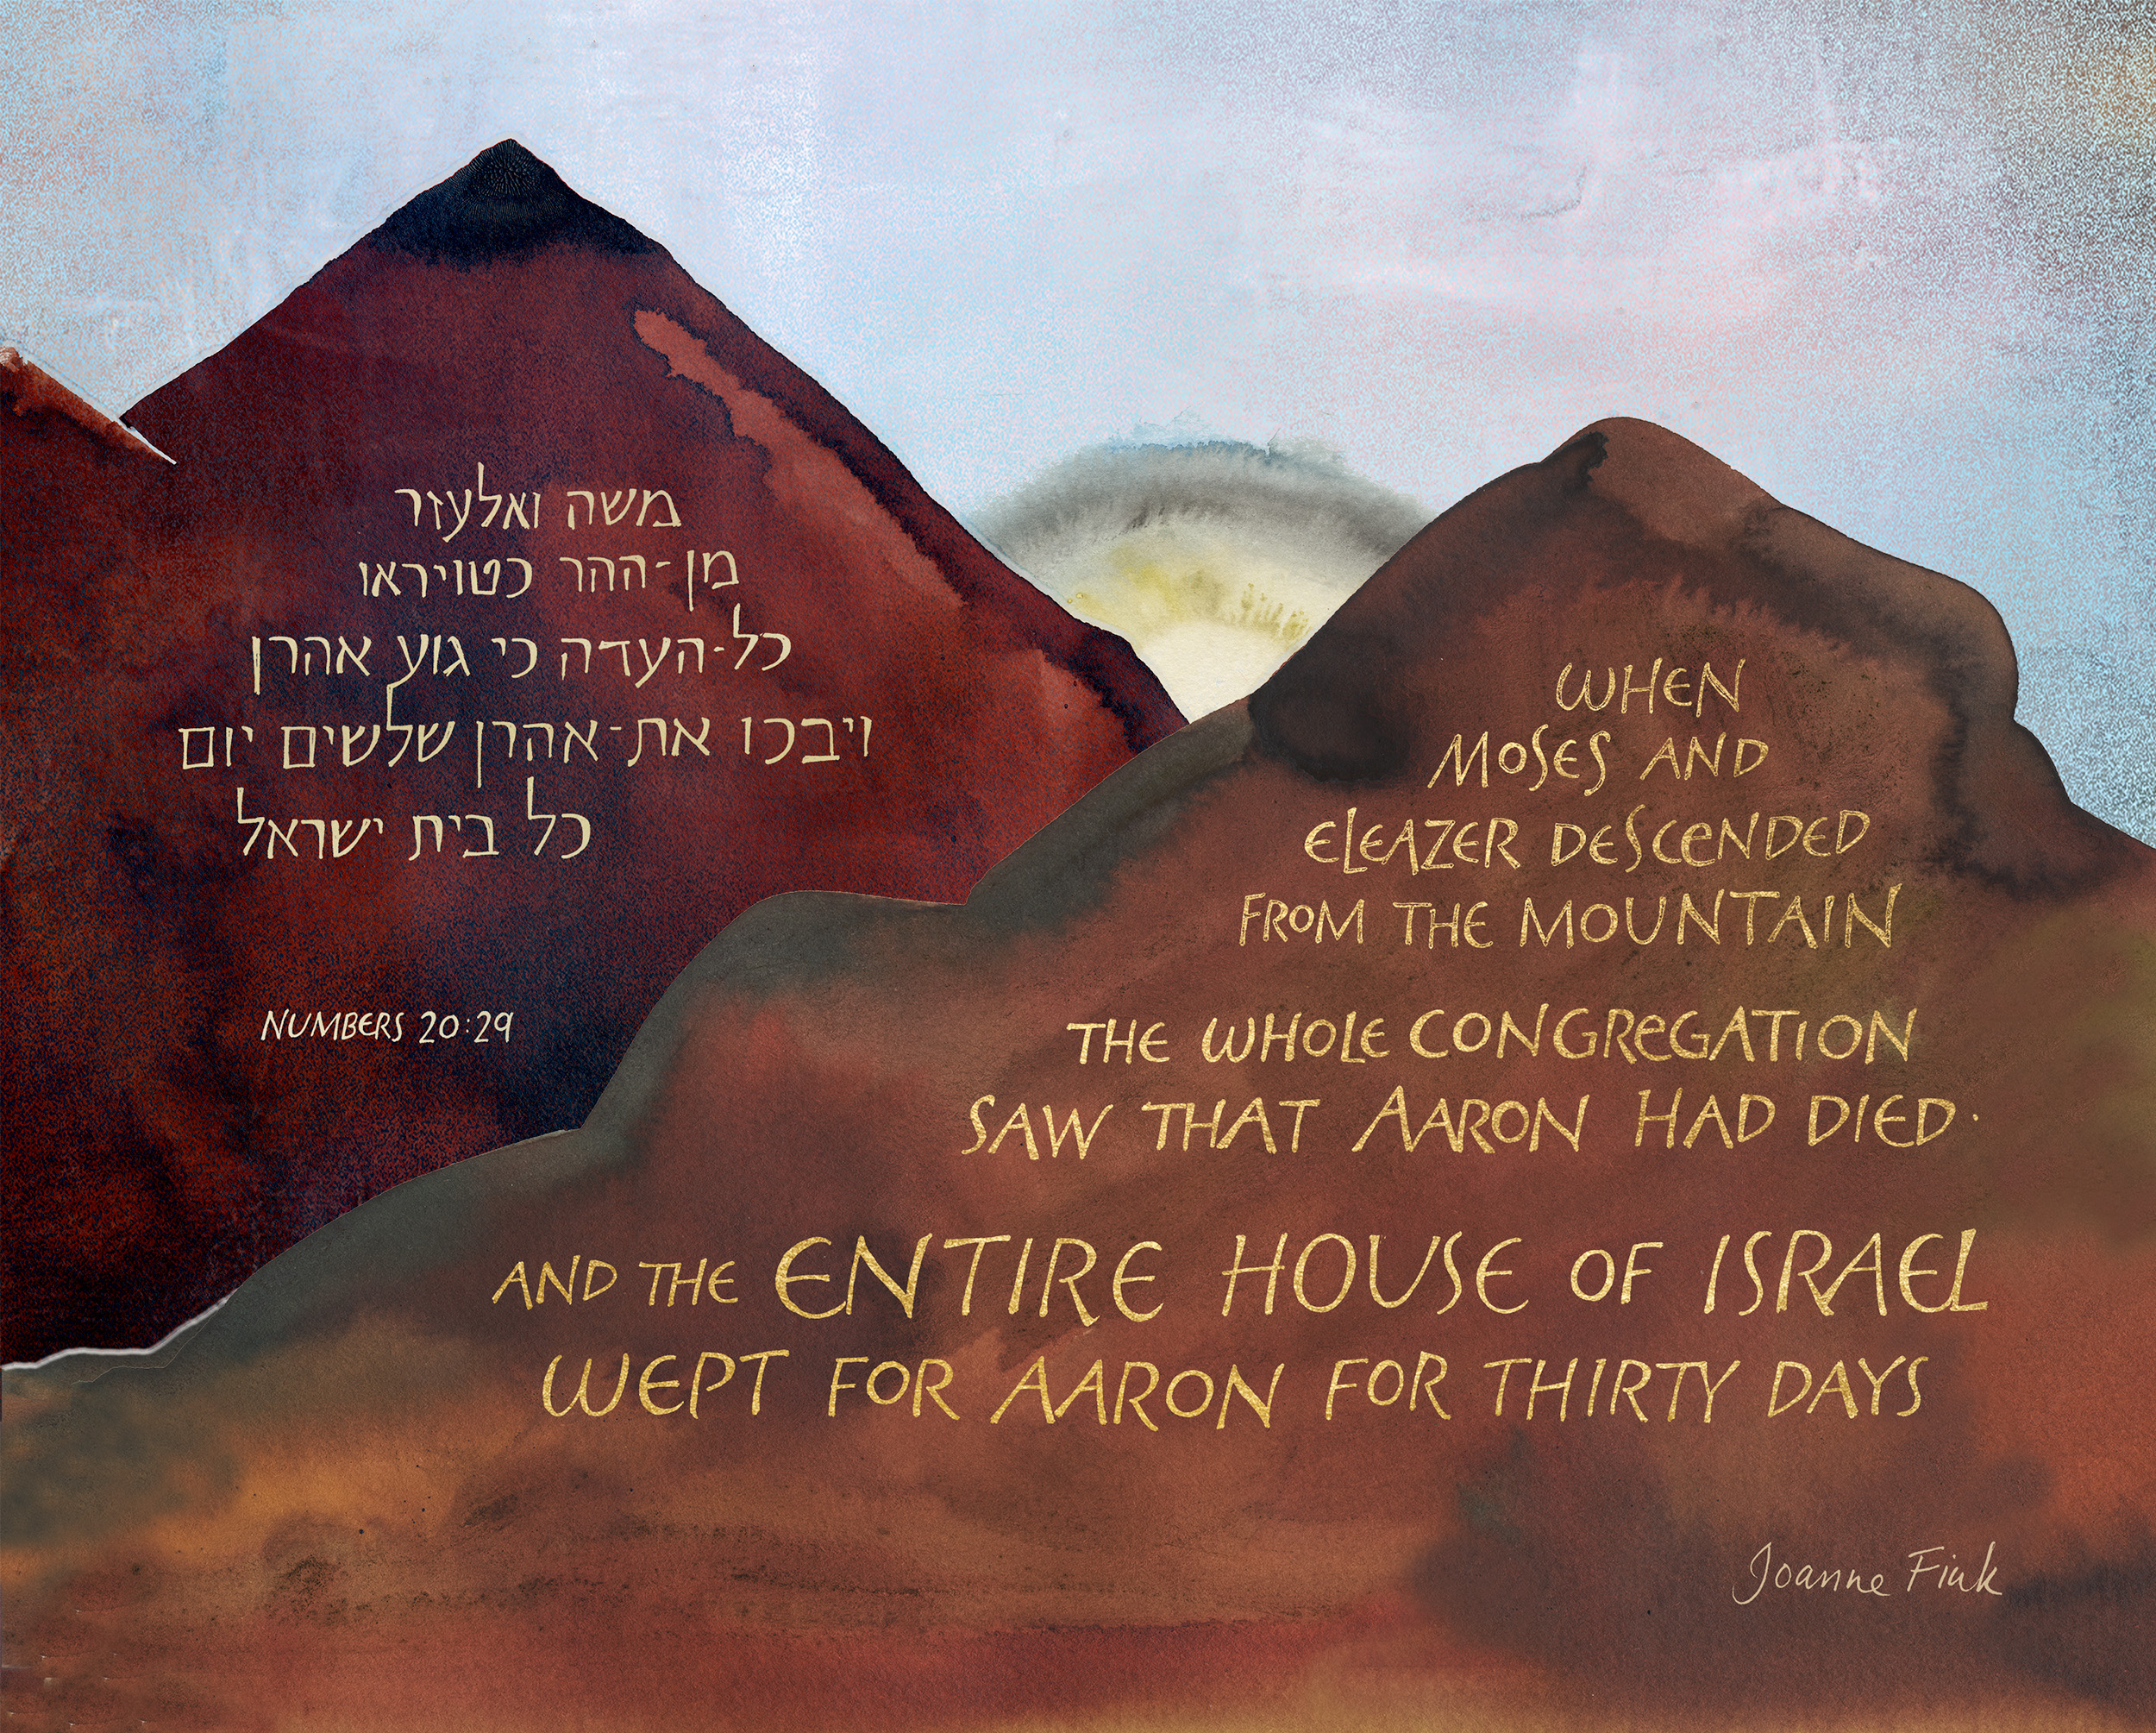 משה ואלעזר
מן-ההר כטויראו
כל-העדה כי גוע אהרן
ויבכו את-אהרן שלשים יום
כל בית ישראל
NUMBERS 20:29
WHEN
MOSES AND
ELEAZER DESCENDED
FROM THE MOUNTAIN
THE WHOLE CONGREGATION
SAW THAT AARON HAD DIED.
AND THE ENTIRE HOUSE OF ISRAEL
WEPT FOR AARON FOR THIRTY DAYS
Joanne Fink